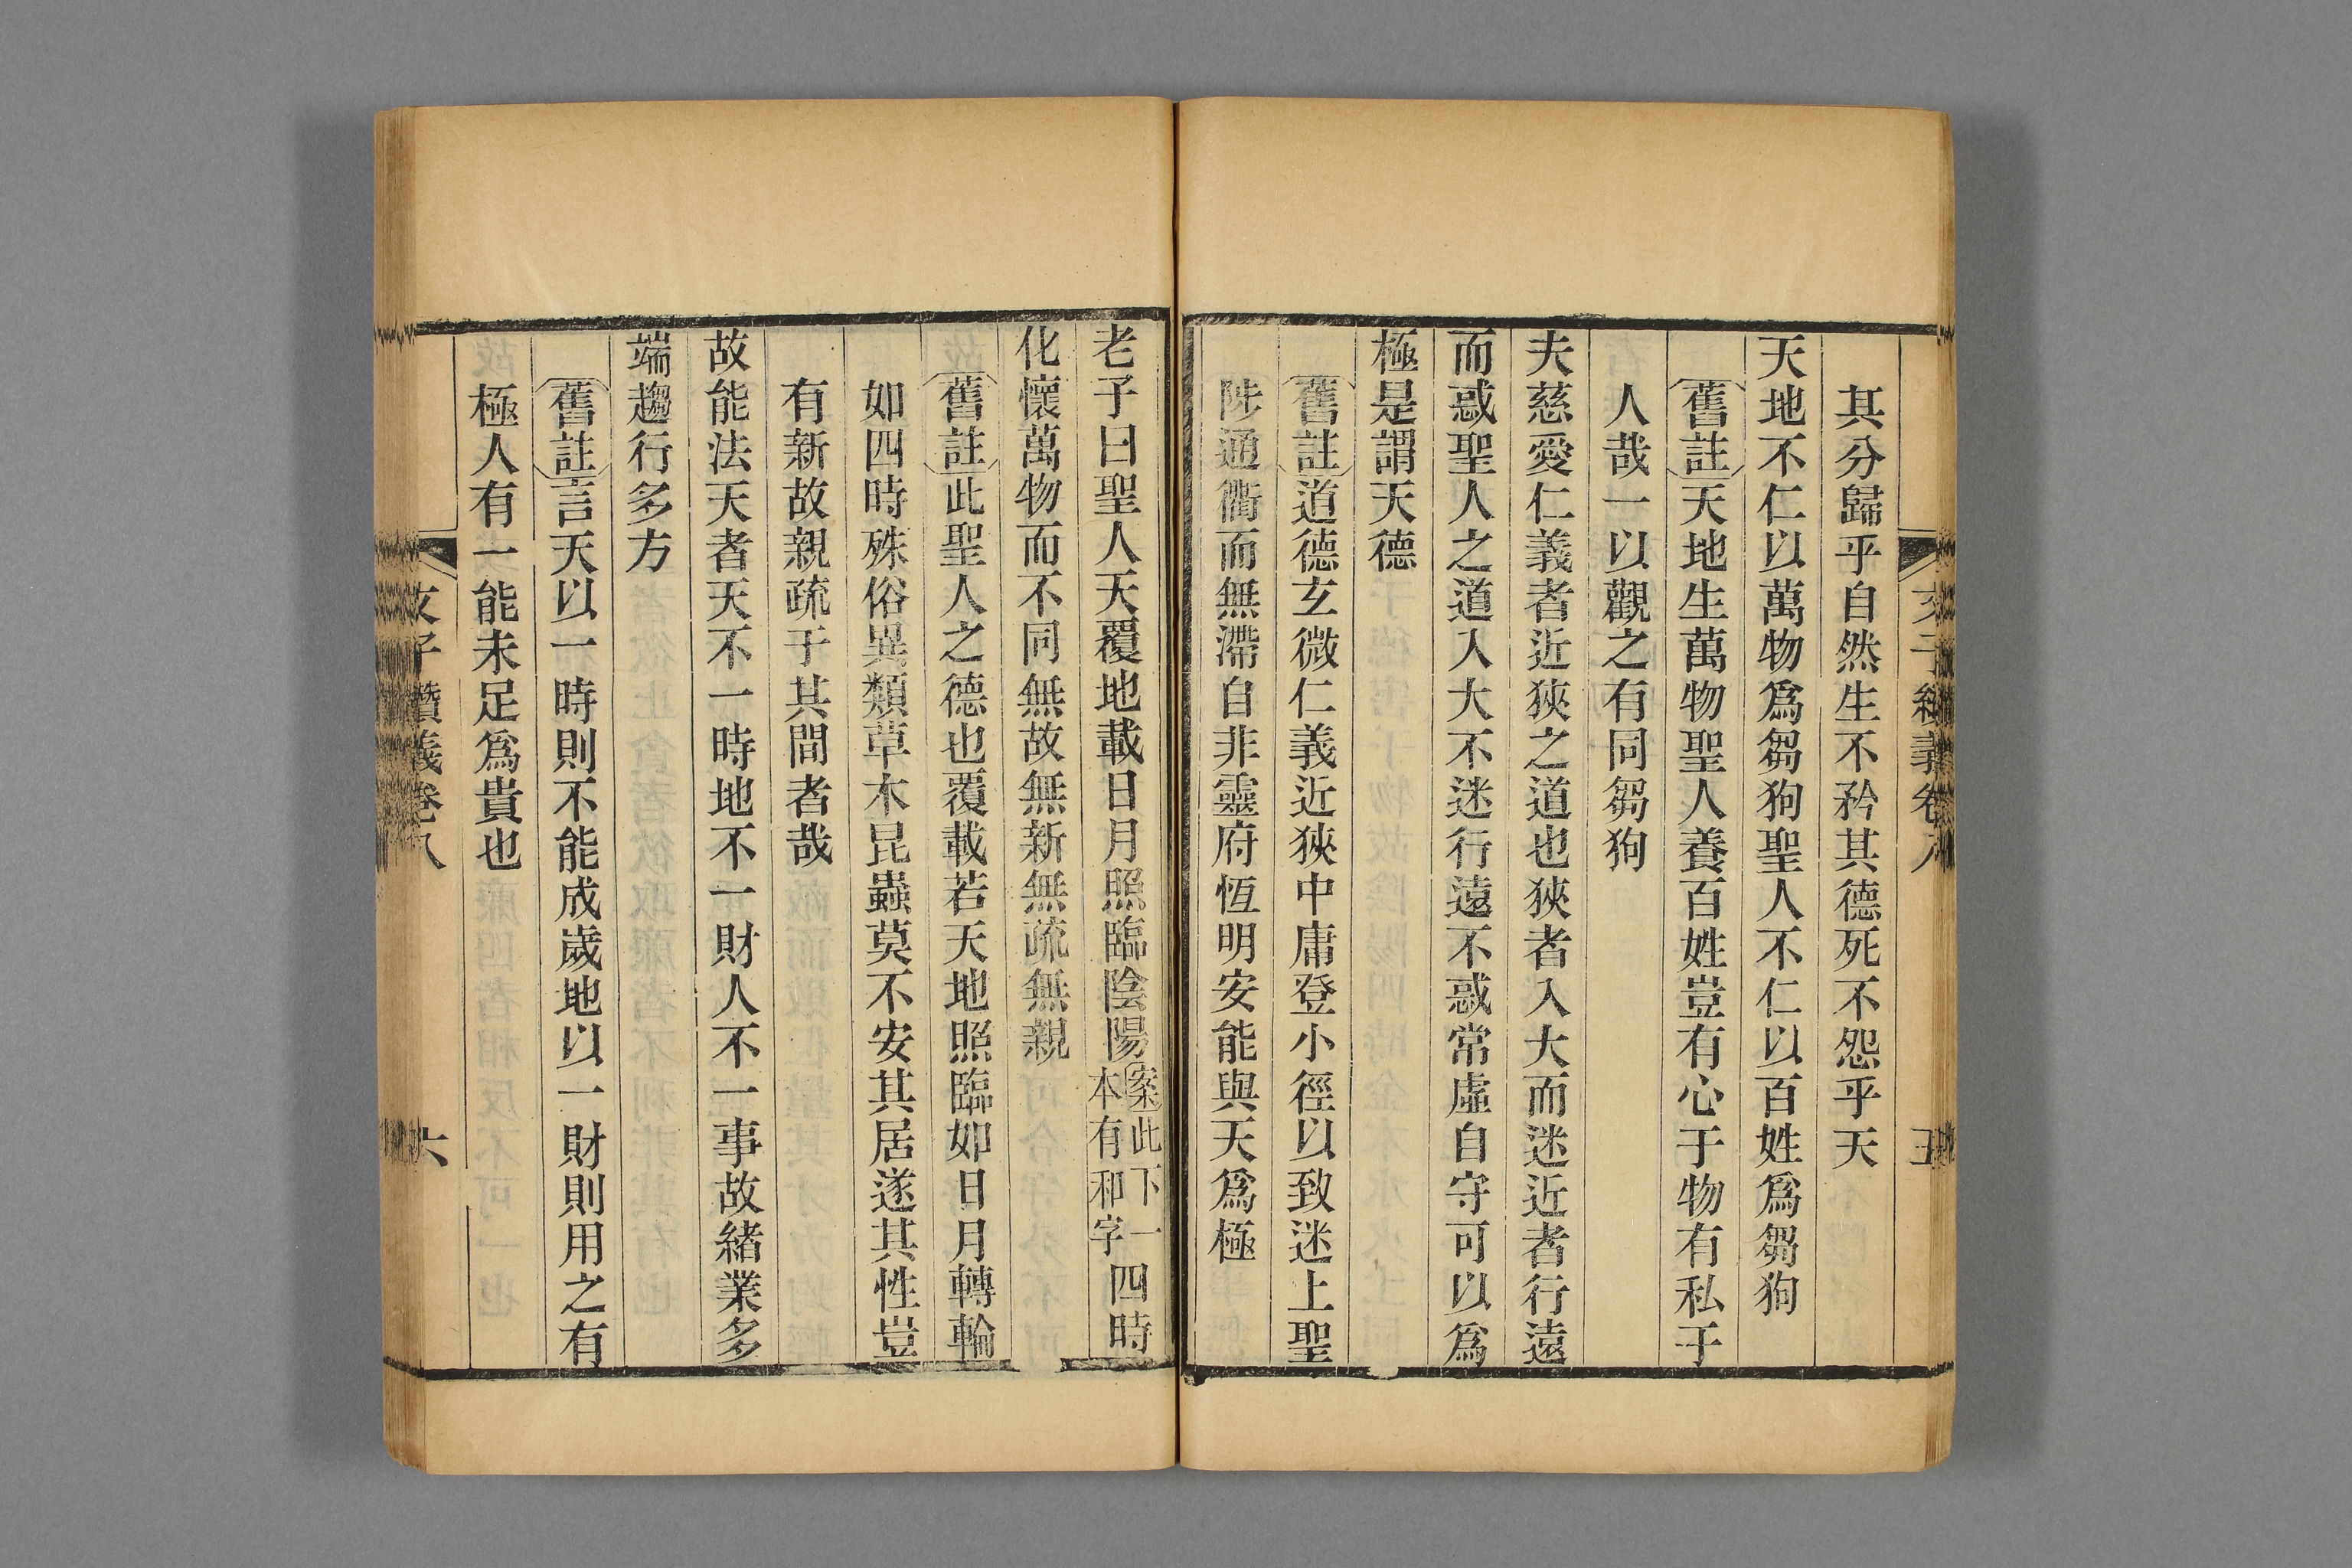 文子纘義卷八
五
其分歸乎自然生不矜其德死不怨乎天
天地不仁以萬物爲芻狗聖人不仁以百姓爲芻狗
舊註天地生萬物聖人養百姓豈有心于物有私于
人哉一以觀之有同芻狗
夫慈愛仁義者近狹之道也狹者入大而迷近者行遠
而惑聖人之道入大不迷行遠不惑常虛自守可以爲
極是謂天德
舊註道德玄微仁義近狹中庸登小徑以致迷上聖
陟通衢而無滯自非靈府恆明安能與天爲極
老子曰聖人天覆地載日月照臨陰陽案此下一本有和字四時
化懷萬物而不同無故無新無疏無親
舊註此聖人之德也覆載若天地照臨如日月轉輪
如四時殊俗異類草木昆蟲莫不安其居遂其性豈
有新故親疏于其間者哉
故能法天者天不一時地不一財人不一事故緒業多
端趨行多方
舊註言天以一時則不能成歲地以一財則用之有
極人有一能未足爲貴也
文子纘義卷八
六